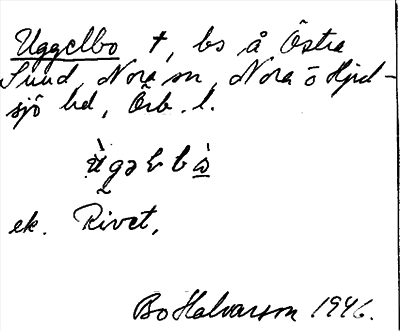 Uggelbo †, bs å Östra
Sund, Nora sn, Nora o Hjul-
sjö bd, Örb. l.
ek. Rivet,
Bo Halvarson 1946.